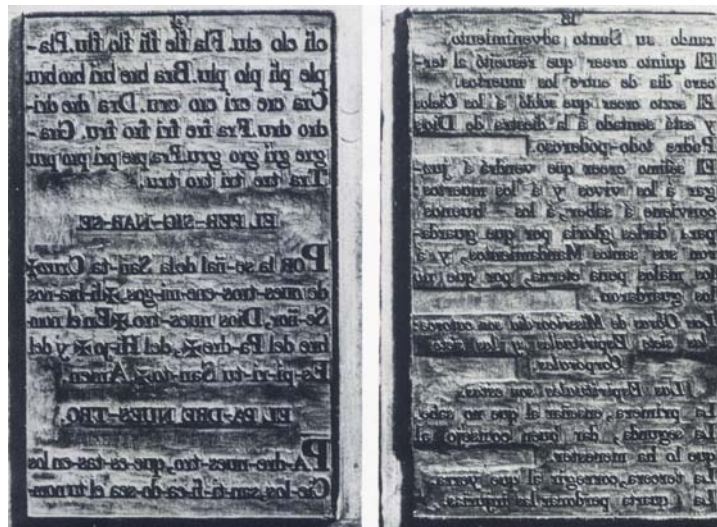 cli clo clu. Fla fle fli flo flu. Pla-
ple pli plo plu. Bra bre bri bro bru.
Cra cre cri cro cru. Dra dre dri-
dro dru. Fra fre fri fro fru. Gra-
gre gri gro gru. Pra pre pri pro pru
Tra tre tri tro tru.
EL PER-SIG-NAR-SE
POR la se-ñal de la San-ta Cruz✠
de nues-tros ene-mi-gos, ✠li-bra-nos
Se-ñor, Dios nues-tro ✠En el nom-
bre del Pa-dre✠, del Hi-jo✠ y del
Es-pi-ri-tu San-to✠. Amen.
EL PA-DRE NUES-TRO.
PA-dre nues-tro, que es-tas en los
Cie-los, san-ti-fi-ca-do sea el tu nom-
rando su Santo advenimiento.
El quinto creer que resucitó al ter-
cero dia de entre los muertos.
El sexto creer que subió á los Cielos
y está sentado á la diestra de Dios
Padre todo-poderoso.
El sétimo creer que vendrá á juz-
gar á los vivos y á los muertos:
conviene á saber, á los buenos
para darles gloria por que guarda-
ron sus santos Mandamientos, y á
los malos pena eterna, por que no
los guardaron.
Las Obras de Misericordia son catorce:
las siete Espirituales y las siete
Corporales.
Las Espirituales son estas.
La primera, enseñar al que no sabe.
La segunda, dar buen consejo al
que lo ha menester.
La tercera, corregir al que yerra.
La cuarta perdonar las injurias.